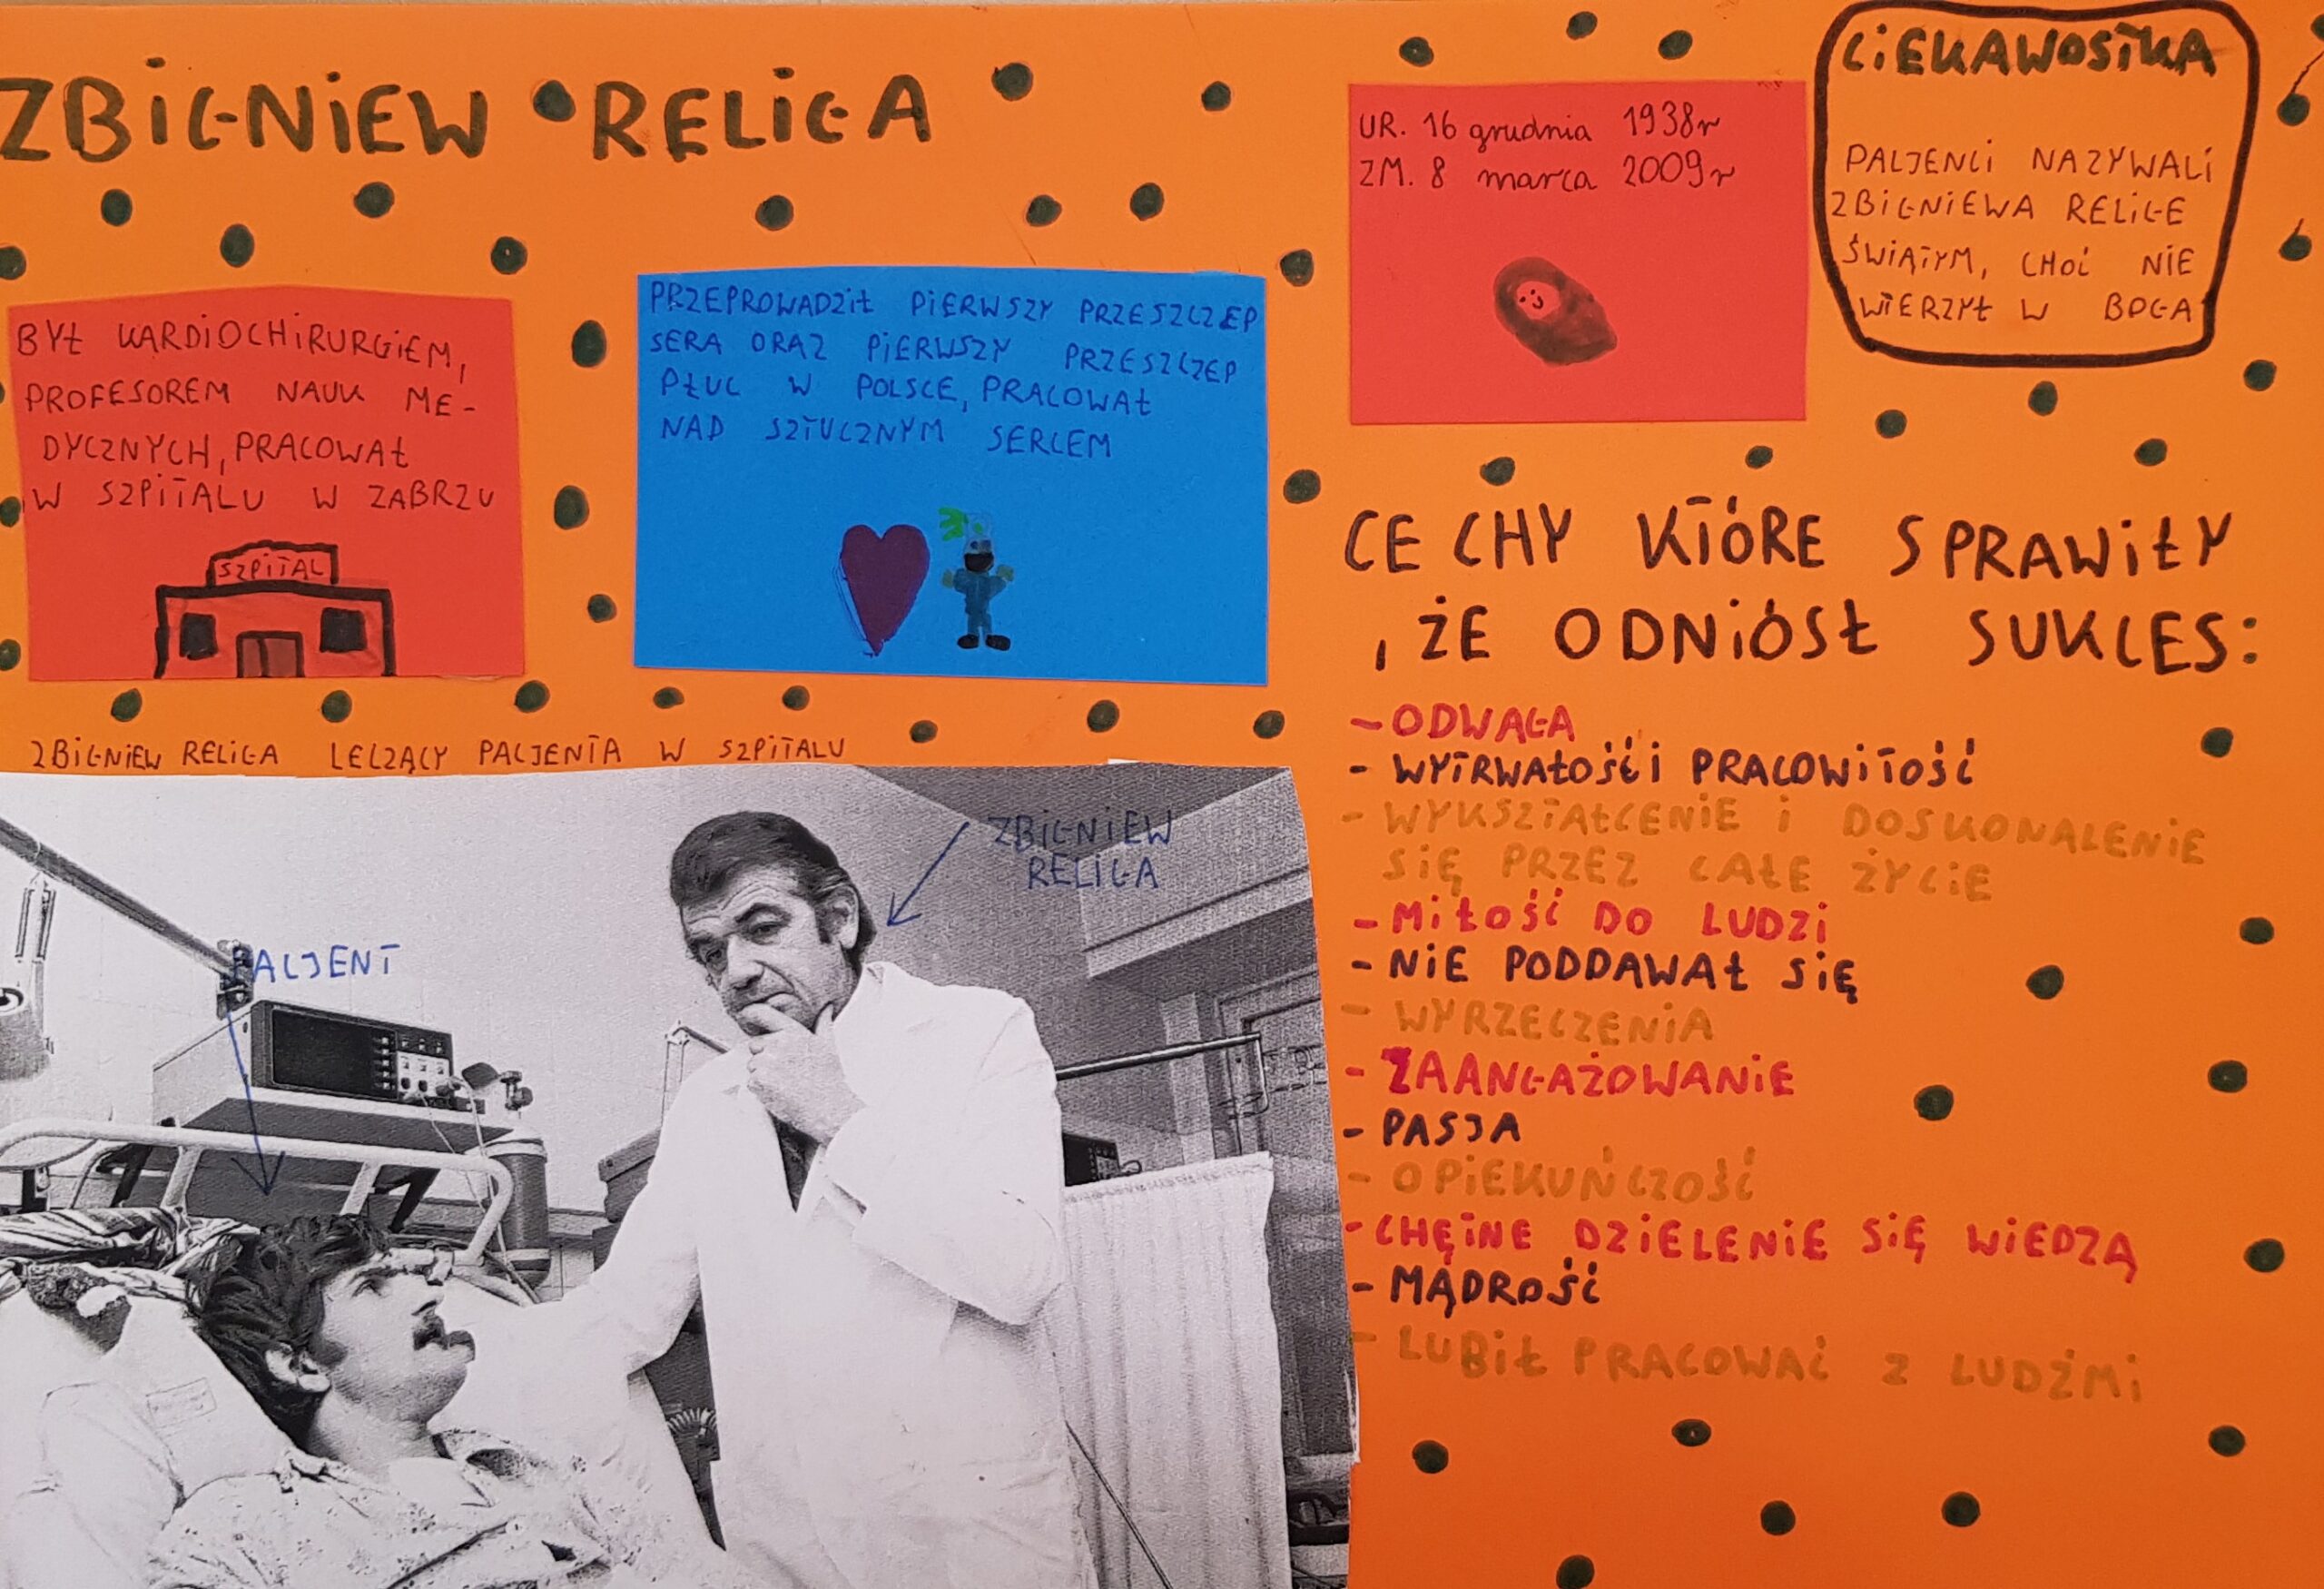 ZBIGNIEW RELIGA
BYŁ KARDIOCHIRURGIEM,
PROFESOREM NAUK ME-
DYCZNYCH, PRACOWAŁ
W SZPITALU W ZABRZU
SZPITAL
PRZEPROWADZIŁ PIERWSZY PRZESZCZEP
SERA ORAZ PIERWSZY PRZESZCZEP
PŁUC W POLSCE, PRACOWAŁ
NAD SZTUCZNYM SERCEM
UR. 16 grudnia 1938r
ZM. 8 marca 2009r
CIEKAWOSTKA
PACJENCI NAZYWALI
ZBIGNIEWA RELIGE
ŚWIĄTYM, CHOĆ NIE
WIERZYŁ W BOGA
ZBIGNIEW RELIGA LECZĄCY PACJENTA W SZPITALU
ZBIGNIEW
RELIGA
PACJENT
CECHY KTÓRE SPRAWIŁY
, ŻE ODNIÓSŁ SUKCES:
- ODWAGA
- WYTRWAŁOŚĆ I PRACOWITOŚĆ
- WYKSZTAŁCENIE I DOSKONALENIE
SIĘ PRZEZ CAŁE ŻYCIE
- MIŁOŚĆ DO LUDZI
- NIE PODDAWAŁ SIĘ
- WYRZECZENIA
- ZAANGAŻOWANIE
- PASJA
- OPIEKUŃCZOŚĆ
- CHĘTNE DZIELENIE SIĘ WIEDZĄ
- MĄDROŚĆ
- LUBIŁ PRACOWAĆ Z LUDŹMI